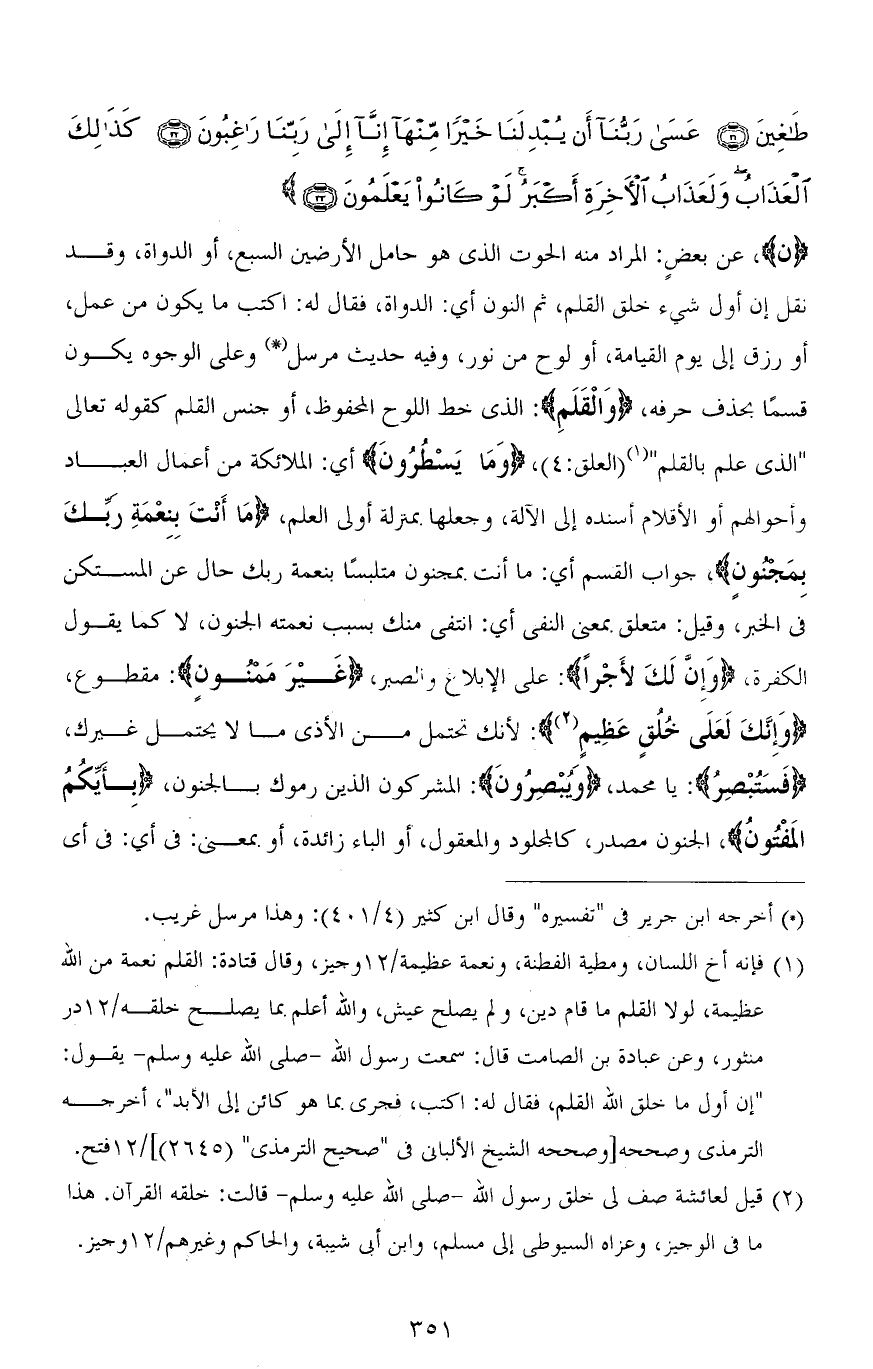 طَٰغِينَ ﴿٣١﴾ عَسَىٰ رَبُّنَآ أَن يُبْدِلَنَا خَيْرًا مِّنْهَآ إِنَّآ إِلَىٰ رَبِّنَا رَٰغِبُونَ ﴿٣٢﴾ كَذَٰلِكَ
ٱلْعَذَابُ ۖ وَلَعَذَابُ ٱلْأَخِرَةِ أَكْبَرُ ۚ لَوْ كَانُوا۟ يَعْلَمُونَ ﴿٣٣﴾ ﴾
﴿ن﴾، عن بعضٍ: المراد منه الحوت الذى هو حامل الأرضين السبع، أو الدواة، وقـــد
نقل إن أول شيء خلق القلم، ثم النون أي: الدواة، فقال له: اكتب ما يكون من عمل،
أو رزق إلى يوم القيامة، أو لوح من نور، وفيه حديث مرسل(*) وعلى الوجوه يكـــون
قسمًا بحذف حرفه، ﴿وَالْقَلَمِ﴾: الذى خط اللوح المحفوظ، أو جنس القلم كقوله تعالى
"الذى علم بالقلم"(١)(العلق:٤)، ﴿وَمَا يَسْطُرُونَ﴾ أي: الملائكة من أعمال العبـــاد
وأحوالهم أو الأقلام أسنده إلى الآلة، وجعلها بمنزلة أولى العلم، ﴿مَا أَنْتَ بِنِعْمَةِ رَبِّــكَ
بِمَجْنُونٍ﴾، جواب القسم أي: ما أنت بمجنون متلبسًا بنعمة ربك حال عن المســتكن
فى الخبر، وقيل: متعلق بمعنى النفى أي: انتفى منك بسبب نعمته الجنون، لا كما يقــول
الكفرة، ﴿وَإِنَّ لَكَ لأَجْراً﴾: على الإبلاغ والصبر، ﴿غَـــيْرَ مَمْنُـــونٍ﴾: مقطــوع،
﴿وَإِنَّكَ لَعَلَى خُلُقٍ عَظِيمٍ(٢)﴾: لأنك تحتمل مـــن الأذى مـــا لا يحتمـــل غــيرك،
﴿فَسَتُبْصِرُ﴾: يا محمد، ﴿وَيُبْصِرُونَ﴾: المشركون الذين رموك بـــالجنون، ﴿بِـــأَيِّكُمُ
المَفْتُونُ﴾، الجنون مصدر، كالمجلود والمعقول، أو الباء زائدة، أو بمعـــنى: فى أي: فى أى
(*) أخرجه ابن جرير فى "تفسيره" وقال ابن كثير (٤٠١/٤): وهذا مرسل غريب.
(١) فإنه أخ اللسان، ومطية الفطنة، ونعمة عظيمة/١٢وجيز، وقال قتادة: القلم نعمة من الله
عظيمة، لولا القلم ما قام دين، و لم يصلح عيش، والله أعلم بما يصلـــح خلقـــه/١٢در
منثور، وعن عبادة بن الصامت قال: سمعت رسول الله -صلى الله عليه وسلم- يقــول:
"إن أول ما خلق الله القلم، فقال له: اكتب، فجرى بما هو كائن إلى الأبد"، أخرجـــه
الترمذى وصححه[وصححه الشيخ الألبانى فى "صحيح الترمذى" (٢٦٤٥)]/١٢فتح.
(٢) قيل لعائشة صف لى خلق رسول الله -صلى الله عليه وسلم- قالت: خلقه القرآن. هذا
ما فى الوجيز، وعزاه السيوطى إلى مسلم، وابن أبى شيبة، والحاكم وغيرهم/١٢وجيز.
٣٥١